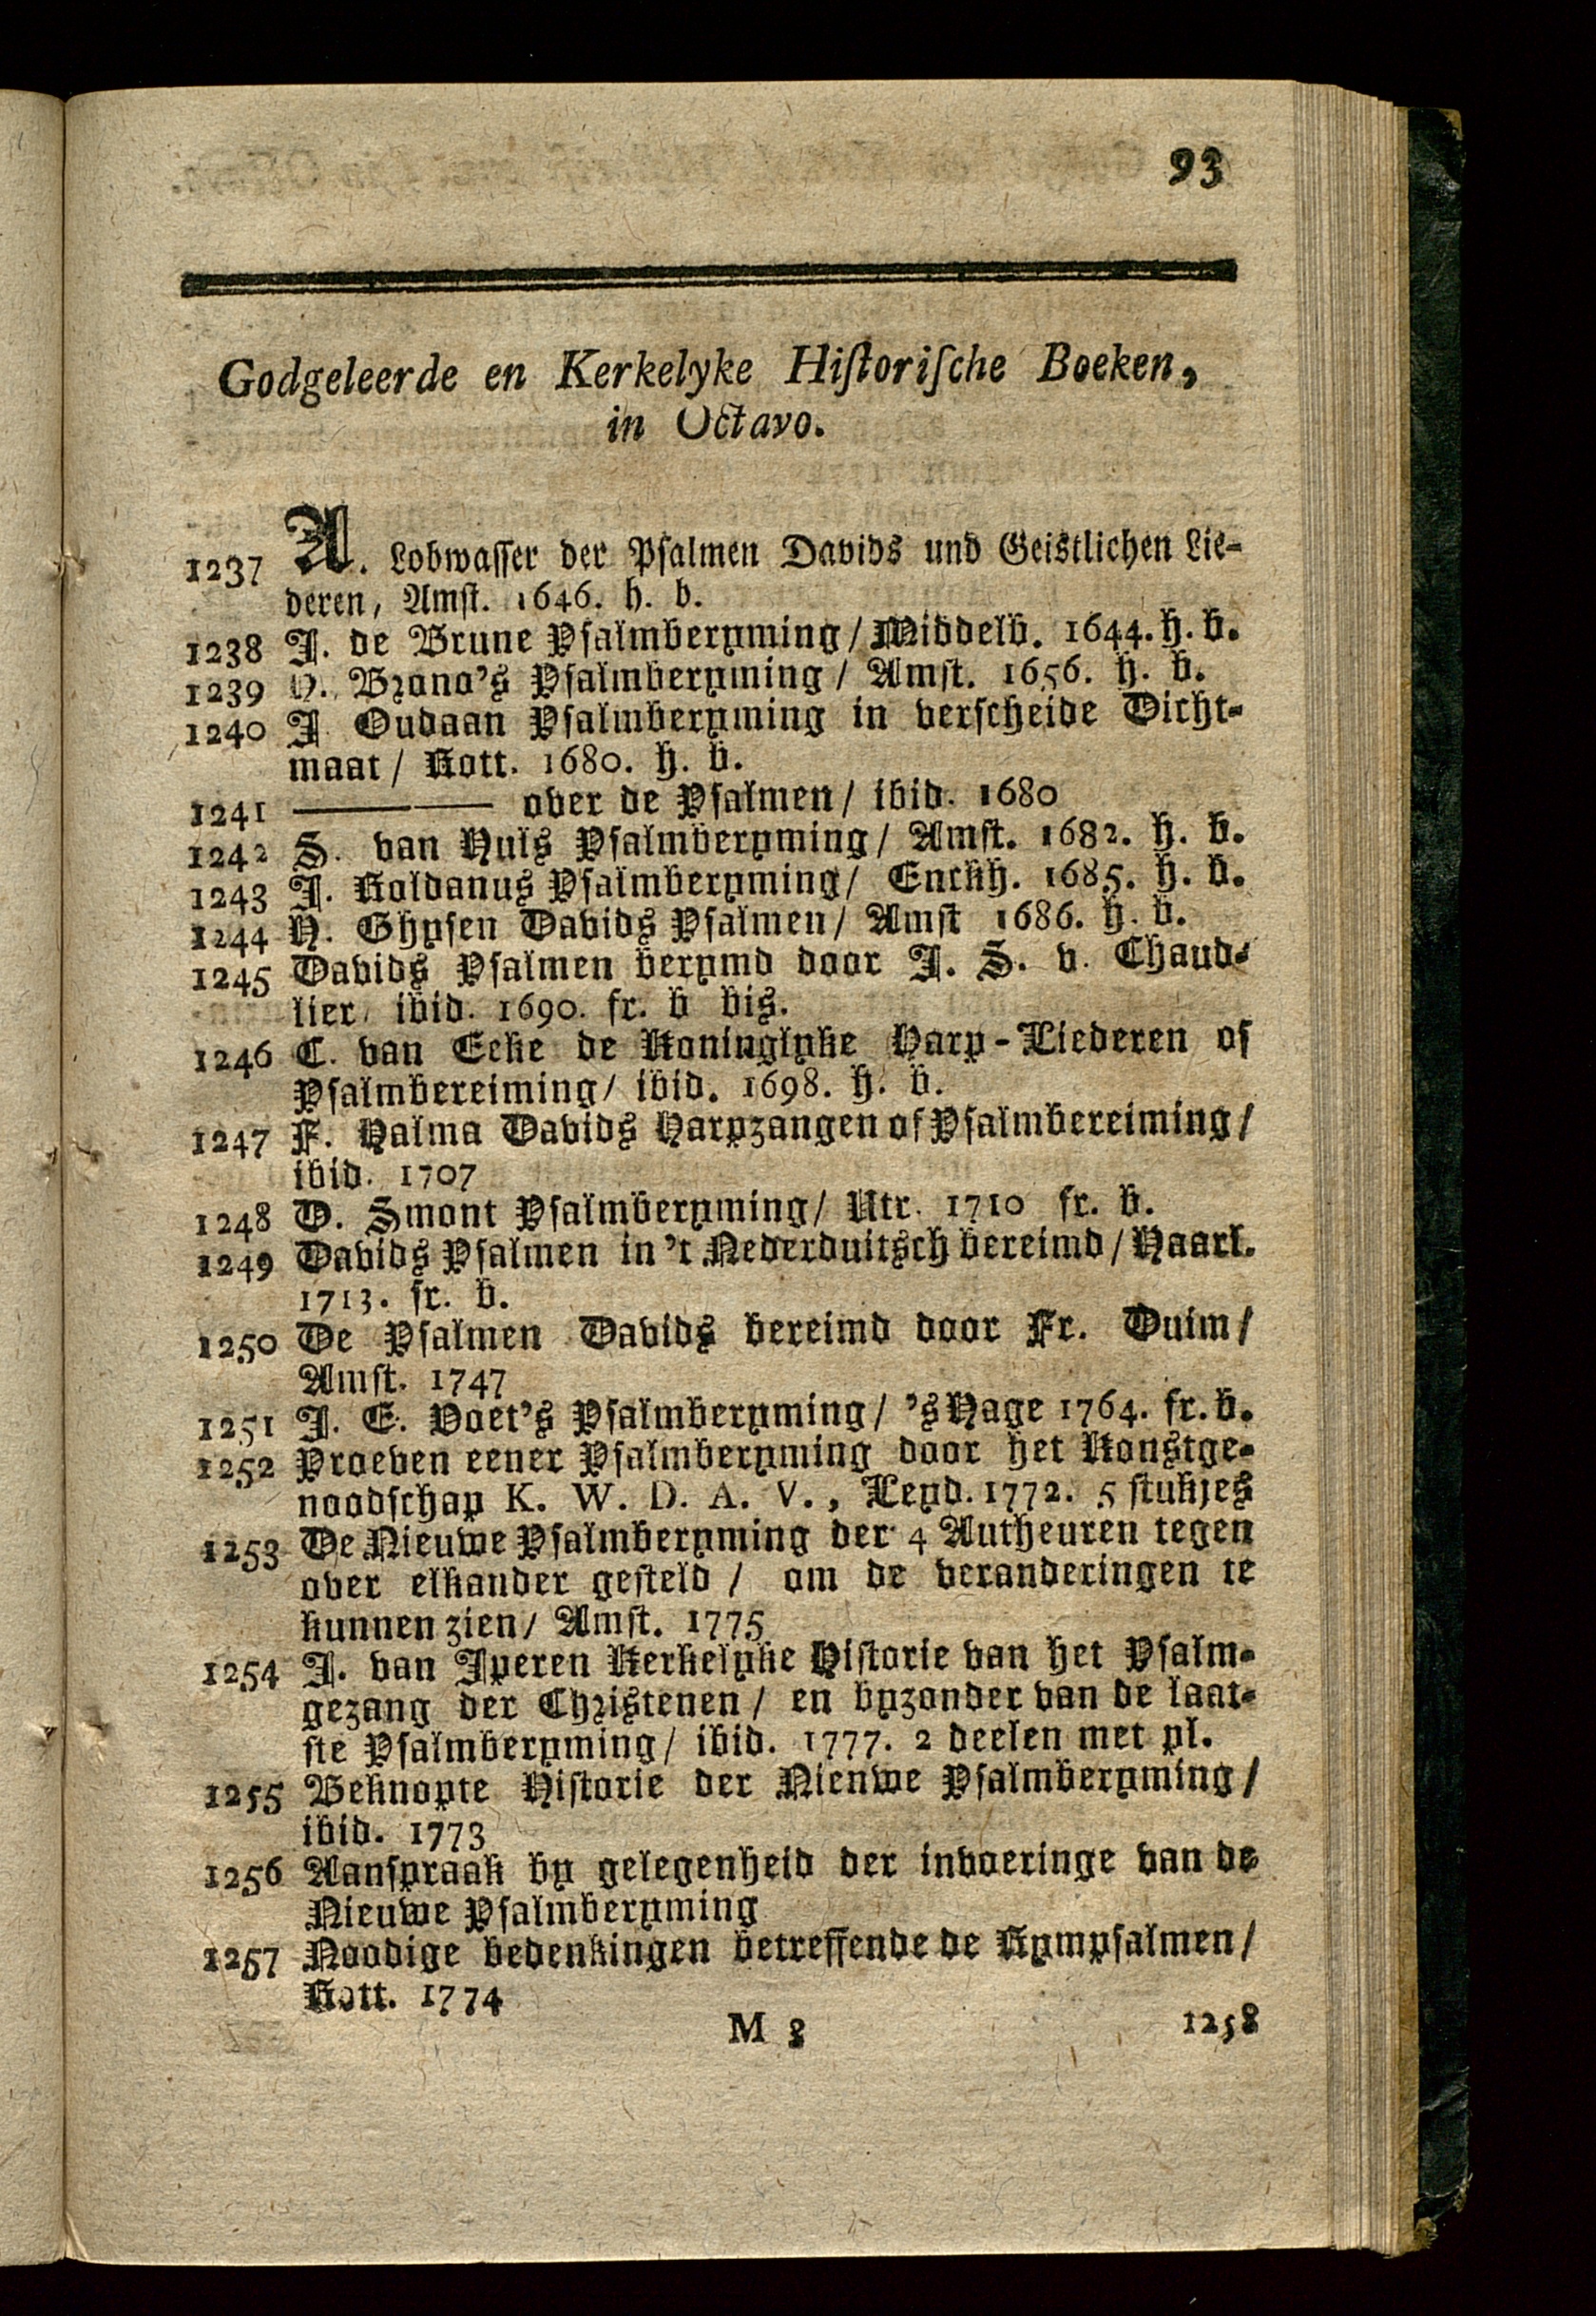 93
Godgeleerde en Kerkelyke Hiſtoriſche Boeken,
in Octavo.
1237 A. Lobwasser der Psalmen Davids und Geistlichen Lie-
deren, Amst. 1646. h. b.
1238 J. de Brune Psalmberyming / Middelb. 1644. h. b.
1239 H. Brono's Psalmberyming / Amst. 1656. h. b.
1240 J Oudaan Psalmberyming in verscheide Dicht-
maat / Rott. 1680. h. b.
1241 ——— over de Psalmen / ibid. 1680
1242 S. van Huls Psalmberyming / Amst. 1682. h. b.
1243 J. Roldanus Psalmberyming / Enckh. 1685. h. b.
1244 H. Ghysen Davids Psalmen / Amst 1686. h. b.
1245 Davids Psalmen berymd door J. S. v. Chaud-
lier, ibid. 1690. fr. b bis.
1246 C. van Ecke de Koninglyke Harp-Liederen of
Psalmbereiming / ibid. 1698. h. b.
1247 F. Halma Davids Harpzangen of Psalmbereiming /
ibid. 1707
1248 D. Smont Psalmberyming / Utr. 1710 fr. b.
1249 Davids Psalmen in 't Nederduitsch bereimd / Haarl.
1713. fr. b.
1250 De Psalmen Davids bereimd door Fr. Duim /
Amst. 1747
1251 J. E. Voet's Psalmberyming / 's Hage 1764. fr. b.
1252 Proeven eener Psalmberyming door het Konstge-
noodschap K. W. D. A. V., Leyd. 1772. 5 stukjes
1253 De Nieuwe Psalmberyming der 4 Autheuren tegen
over elkander gesteld / om de veranderingen te
kunnen zien / Amst. 1775
1254 J. van Iperen Kerkelyke Historie van het Psalm-
gezang der Christenen / en byzonder van de laat-
ste Psalmberyming / ibid. 1777. 2 deelen met pl.
1255 Beknopte Historie der Nienwe Psalmberyming /
ibid. 1773
1256 Aanspraak by gelegenheid der invoeringe van de
Nieuwe Psalmberyming
1257 Noodige bedenkingen betreffende de Rympsalmen /
Rott. 1774
M 3 1258